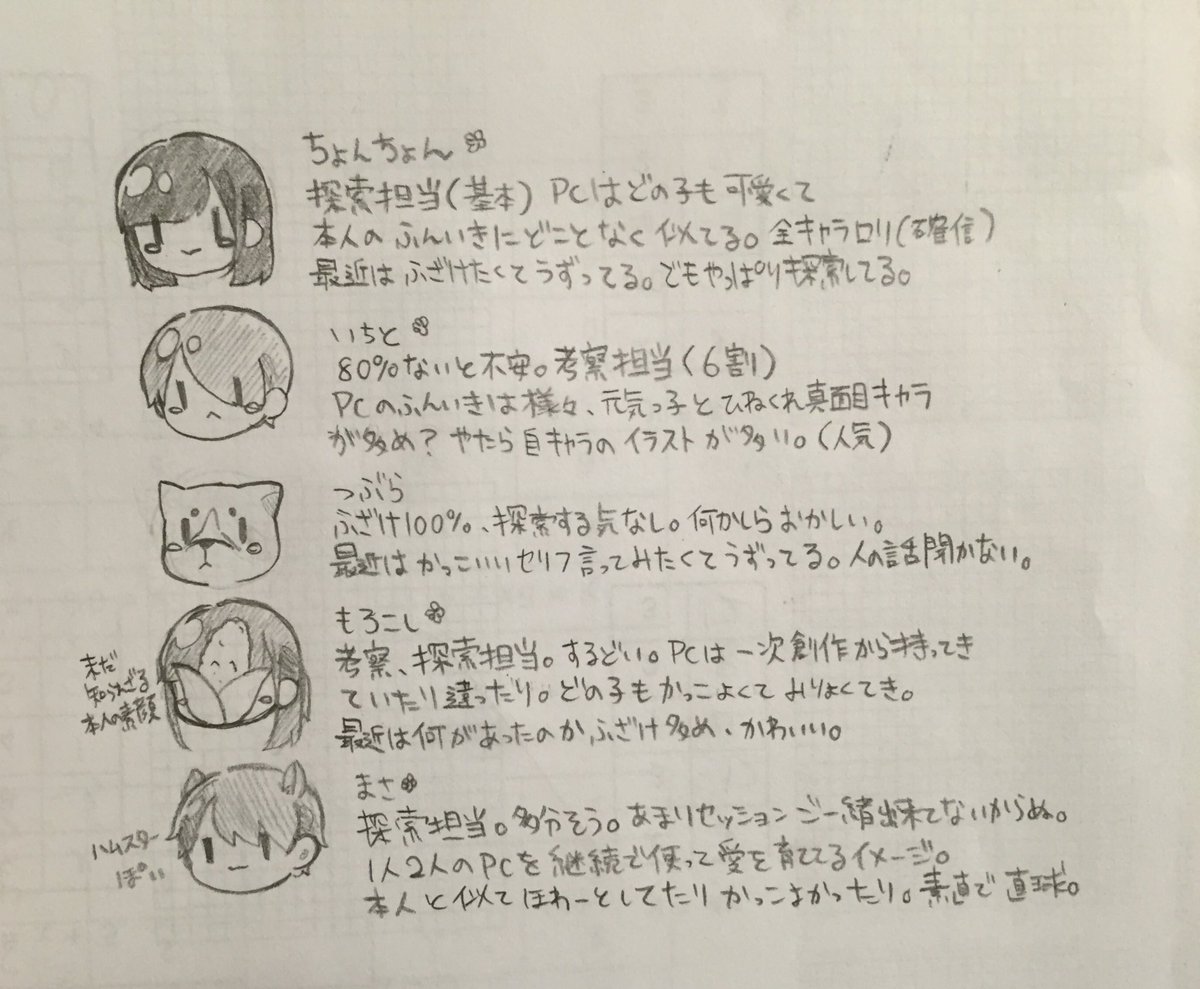 ちょんちょん
探索担当(基本) PCはどの子も可愛くて
本人のふんいきにどことなく似てる。全キャラロリ(確信)
最近はふざけたくてうずってる。でもやっぱり探索してる。
いちと
80%ないと不安。考察担当(6割)
PCのふんいきは様々、元気っ子とひねくれ真面目キャラ
が多め?やたら自キャラのイラストが多い。(人気)
つぶら
ふざけ100%、探索する気なし。何かしらおかしい。
最近はかっこいいセリフ言ってみたくてうずってる。人の話聞かない。
もろこし
考察、探索担当。するどい。PCは一次創作から持ってき
ていたり違ったり。どの子もかっこよくてみりょくてき。
最近は何があったのかふざけ多め、かわいい。
未だ
知られざる
本人の素顔
まさ
探索担当。多分そう。あまりセッションご一緒出来てないからぬ。
1人2人のPCを継続で使って愛を育ててるイメージ。
本人と似てほわーとしてたりかっこよかったり。素直で直球。
ハムスター
ぽい